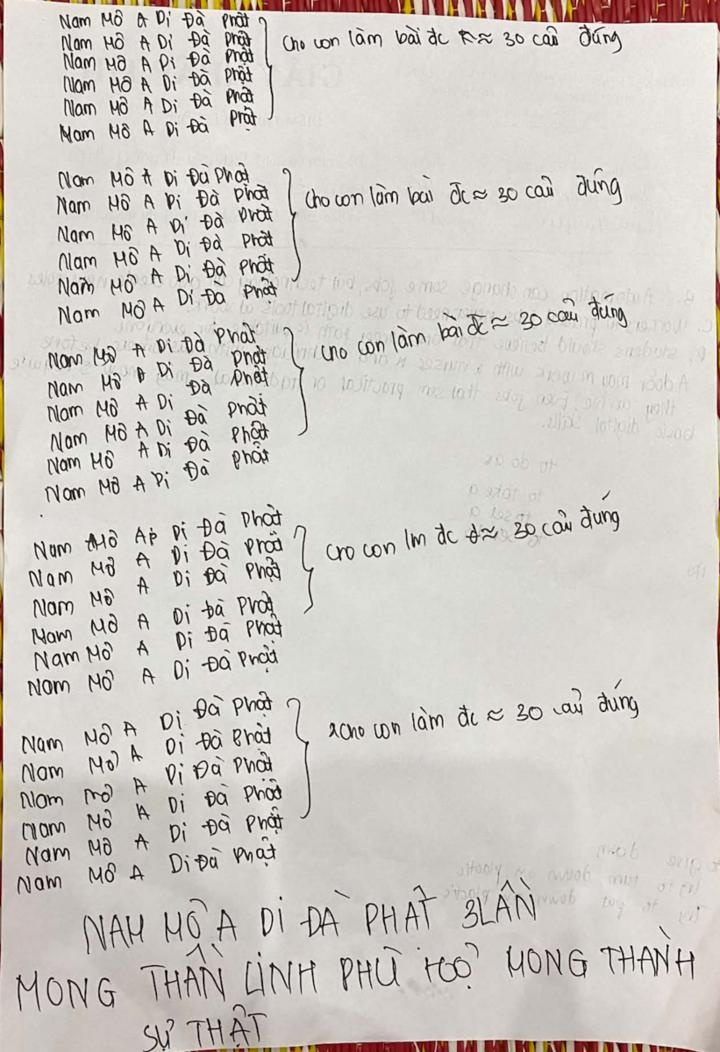 Nam Mô A Di Đà Phật
Nam Mô A Di Đà Phật
Nam Mô A Di Đà Phật
Nam Mô A Di Đà Phật
Nam Mô A Di Đà Phật
Nam Mô A Di Đà Phật
cho con làm bài đc ≈ 30 câu đúng
Nam Mô A Di Đà Phật
Nam Mô A Di Đà Phật
Nam Mô A Di Đà Phật
Nam Mô A Di Đà Phật
Nam Mô A Di Đà Phật
Nam Mô A Di Đà Phật
cho con làm bài đc ≈ 30 câu đúng
Nam Mô A Di Đà Phật
Nam Mô A Di Đà Phật
Nam Mô A Di Đà Phật
Nam Mô A Di Đà Phật
Nam Mô A Di Đà Phật
Nam Mô A Di Đà Phật
cho con làm bài đc ≈ 30 câu đúng
Nam Mô A Di Đà Phật
Nam Mô A Di Đà Phật
Nam Mô A Di Đà Phật
Nam Mô A Di Đà Phật
Nam Mô A Di Đà Phật
Nam Mô A Di Đà Phật
cho con lm đc ≈ 30 câu đúng
Nam Mô A Di Đà Phật
Nam Mô A Di Đà Phật
Nam Mô A Di Đà Phật
Nam Mô A Di Đà Phật
Nam Mô A Di Đà Phật
Nam Mô A Di Đà Phật
cho con làm đc ≈ 30 câu đúng
NAM MÔ A DI ĐÀ PHẬT 3 LẦN
MONG THẦN LINH PHÙ HỘ MONG THÀNH
SỰ THẬT